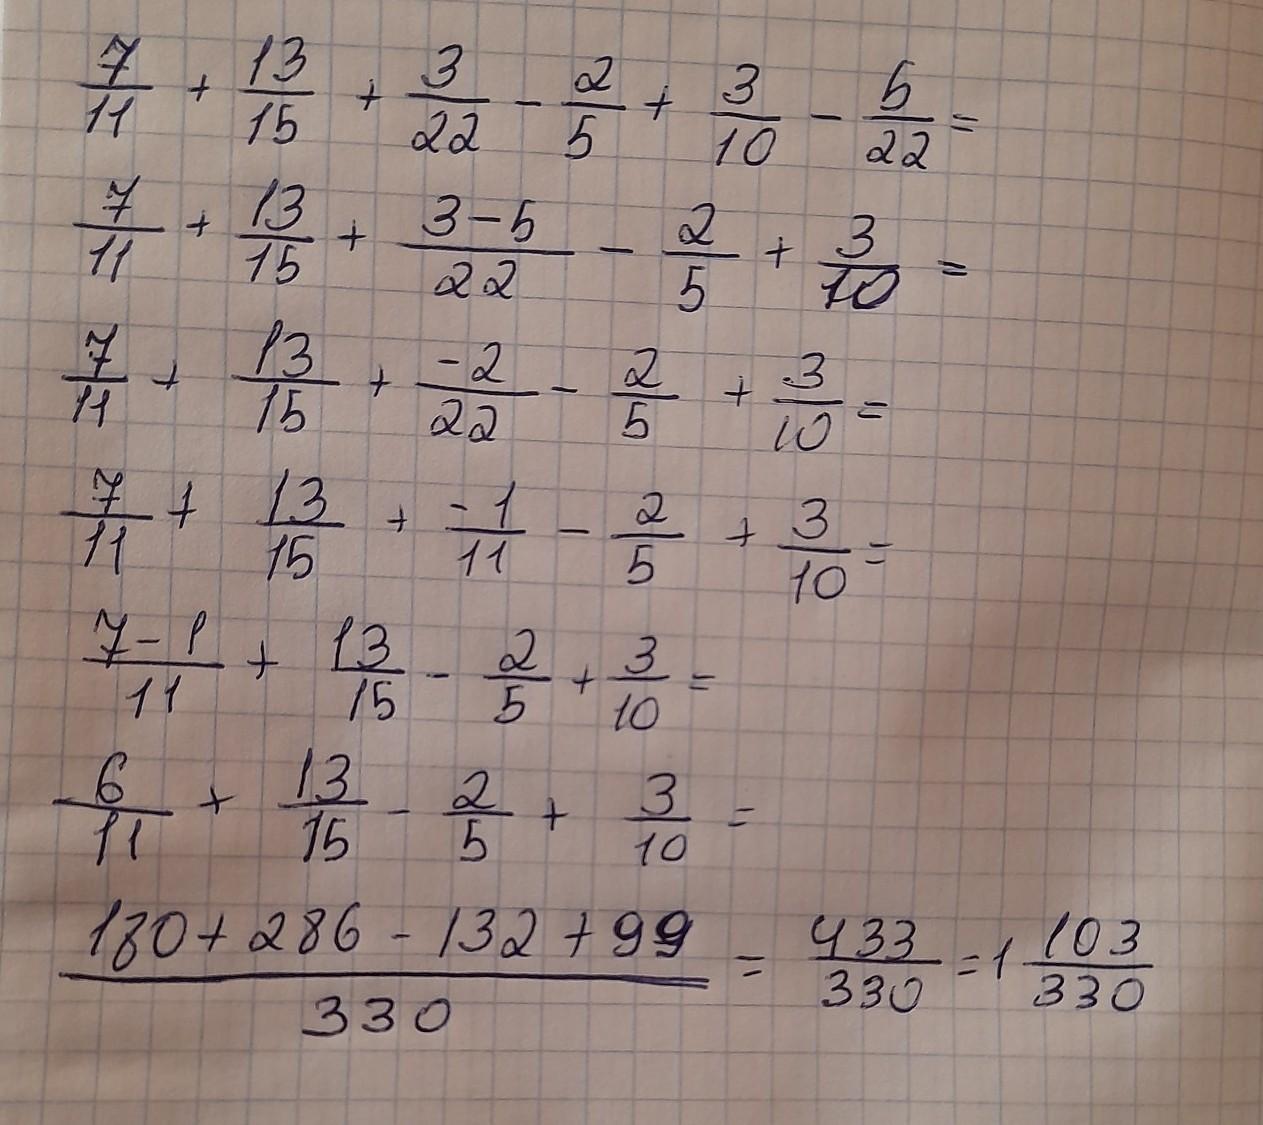 7/11 + 13/15 + 3/22 - 2/5 + 3/10 - 5/22 =
7/11 + 13/15 + (3-5)/22 - 2/5 + 3/10 =
7/11 + 13/15 + -2/22 - 2/5 + 3/10 =
7/11 + 13/15 + -1/11 - 2/5 + 3/10 =
(7-1)/11 + 13/15 - 2/5 + 3/10 =
6/11 + 13/15 - 2/5 + 3/10 =
(180 + 286 - 132 + 99)/330 = 433/330 = 1 103/330